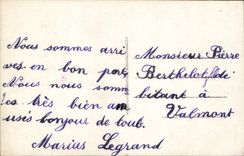 Nous sommes arri
vés en bon port
Nous nous somm
es très bien am
usés bonjour de tous.
Marius Legrand
Monsieur Pierre
Berthelot
bitant à
Valmont